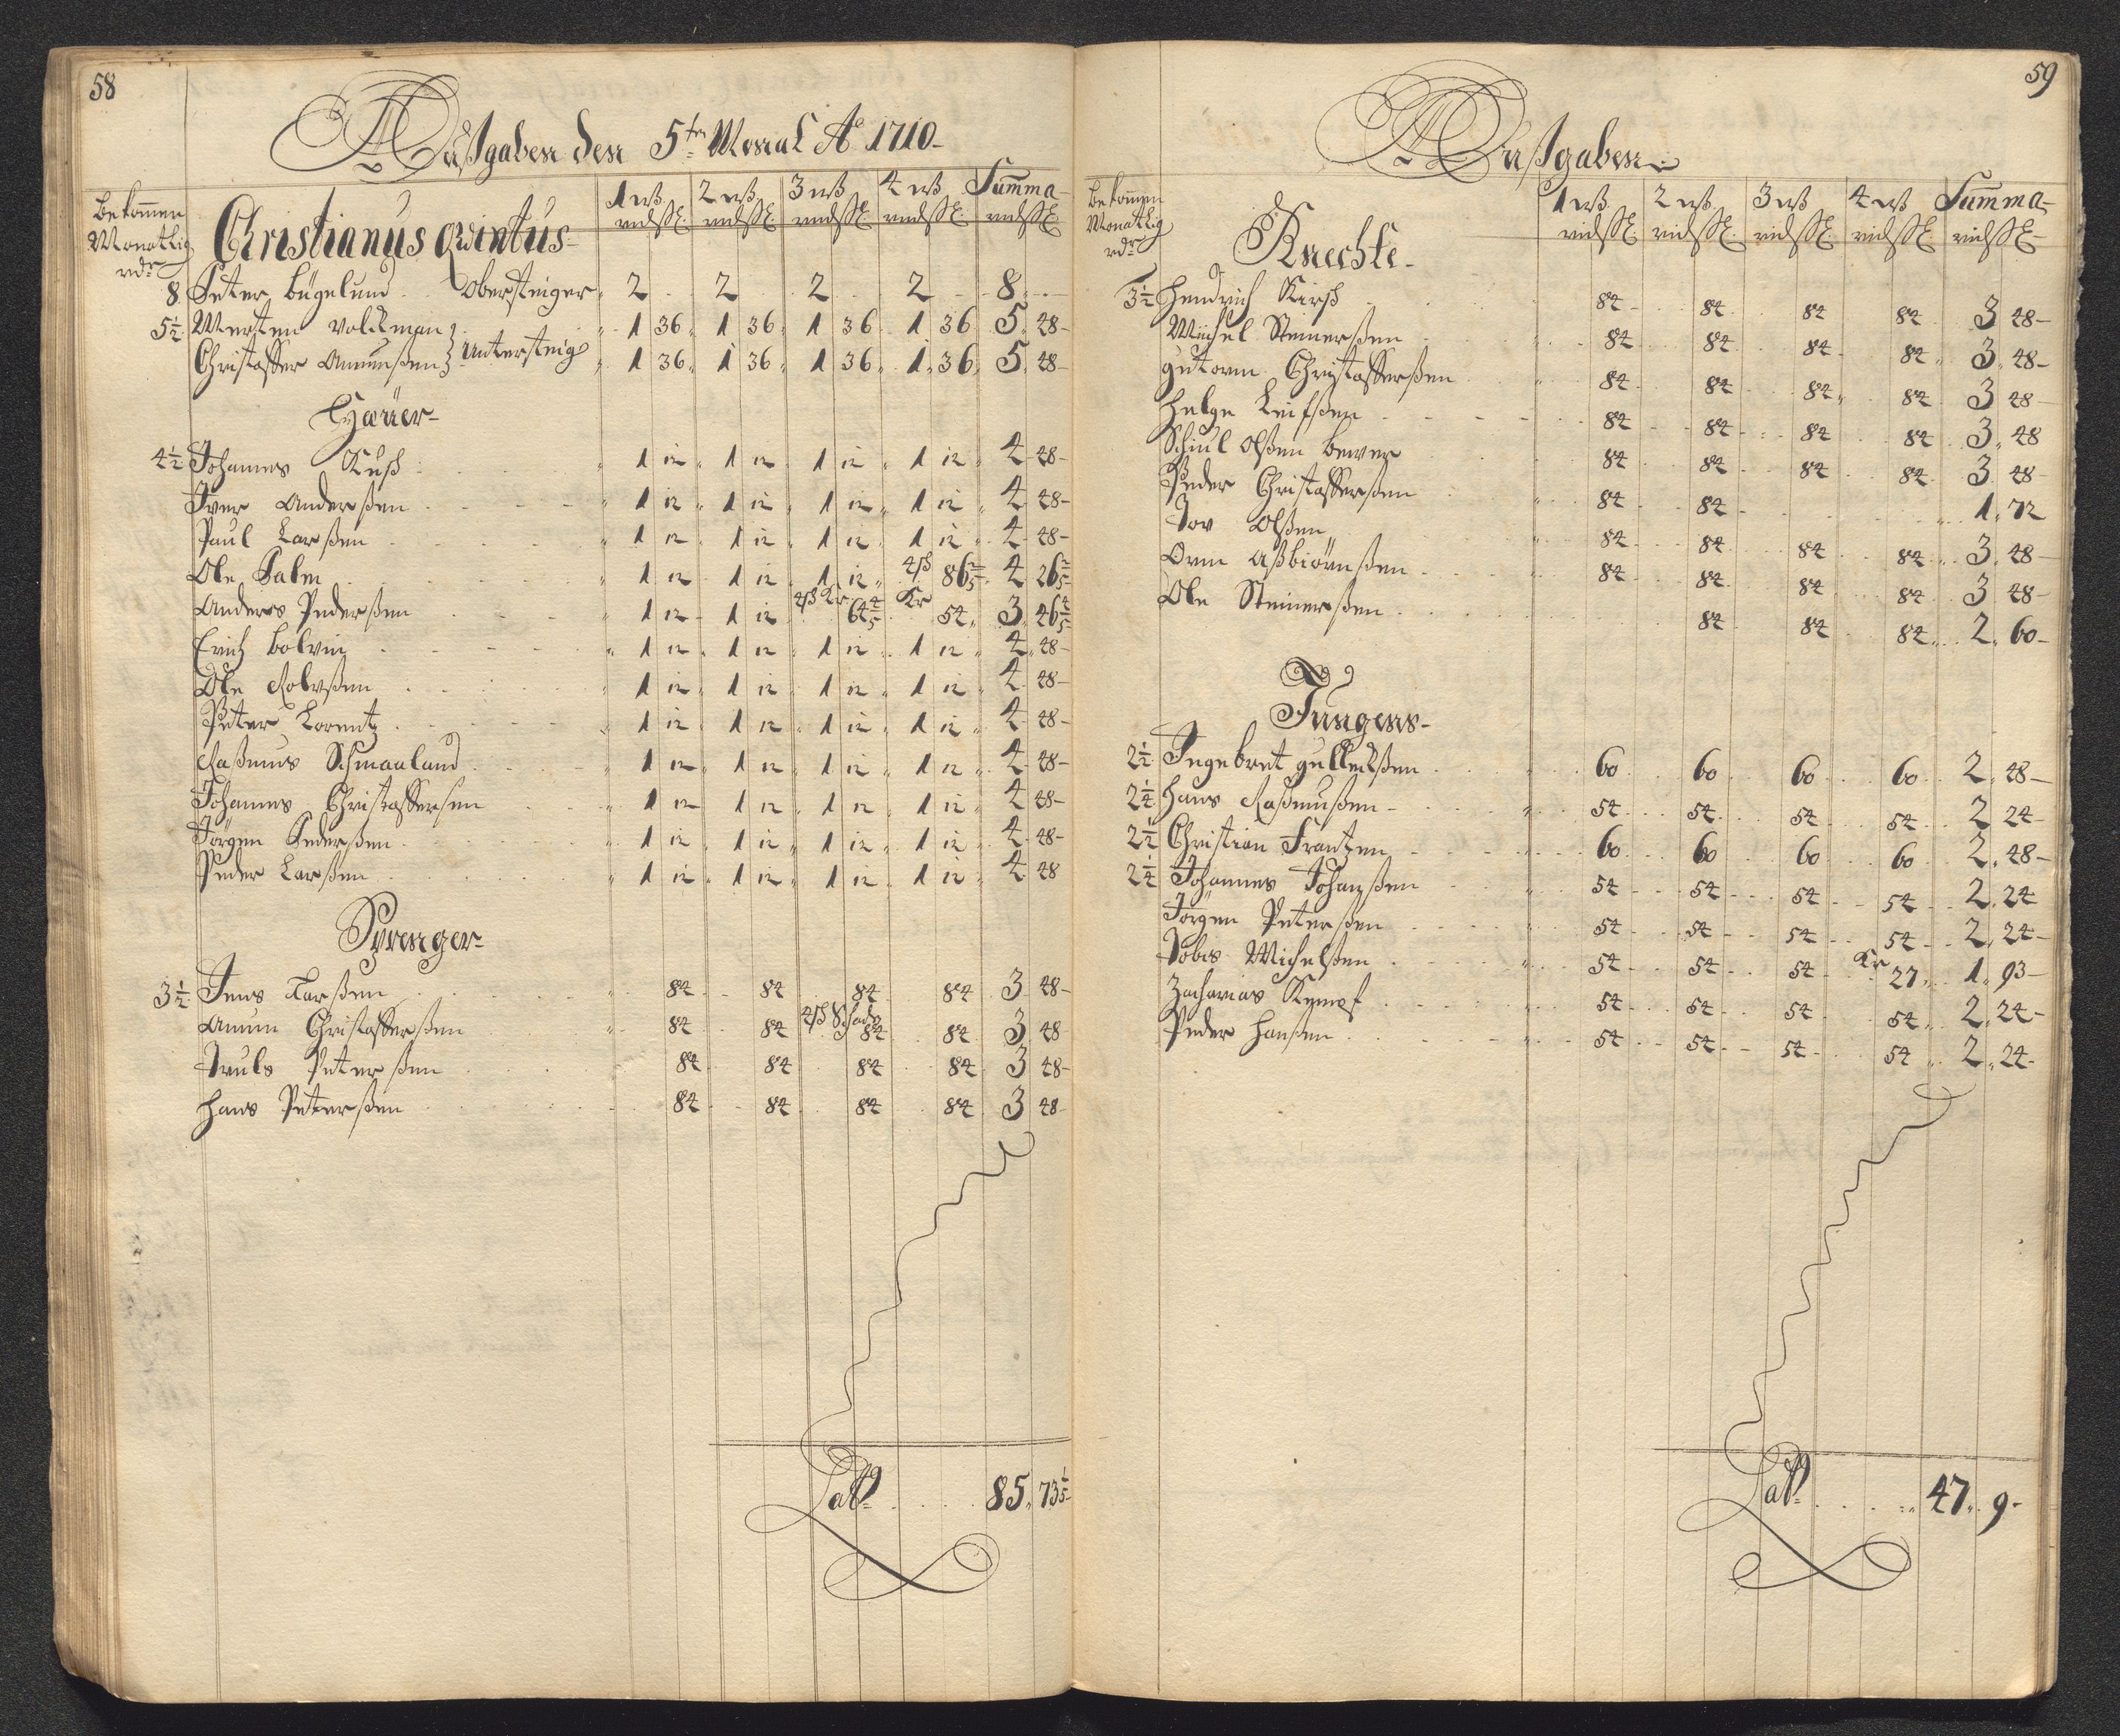 58
Außgaben den 5ten Monat Ao 1710
Bekom̃en Monatlig rdr
Christianus Qvintus
1 wß 2 wß 3 wß 4 wß Sum̃a
8 Peter Bügelund Obersteiger 2 2 2 2 8
5½ Merten Volckman Untersteig 1 36 1 36 1 36 1 36 5 48
Christoffer Amunßen 1 36 1 36 1 36 1 36 5 48
Haüer
4½ Johannes Kuß 1 12 1 12 1 12 1 12 4 48
Iver Anderßen 1 12 1 12 1 12 1 12 4 48
Paul Larßen 1 12 1 12 1 12 1 12 4 48
Ole Palm 1 12 1 12 1 12 4ß 86 2/5 4 26 2/5
Anders Pederßen 1 12 1 12 4ß Kr 64 4/5 Kr 54 3 46 4/5
Erich Bolvin 1 12 1 12 1 12 1 12 4 48
Ole Rolvßen 1 12 1 12 1 12 1 12 4 48
Peter Lorentz 1 12 1 12 1 12 1 12 4 48
Raßmus Schmaaland 1 12 1 12 1 12 1 12 4 48
Johannes Christoffersen 1 12 1 12 1 12 1 12 4 48
Jörgen Pederßen 1 12 1 12 1 12 1 12 4 48
Peder Larßen 1 12 1 12 1 12 1 12 4 48
Sprenger
3½ Jens Larßen 84 84 84 84 3 48
Amun Christofferßen 84 84 4ß Schade 84 84 3 48
Truls Peterßen 84 84 84 84 3 48
Hans Peterßen 84 84 84 84 3 48
Lats 85 73 1/5
59
Außgaben
Bekom̃en Monatlig rdr
Knechte
1 wß 2 wß 3 wß 4 wß Sum̃a
3½ Hendrich Kirß 84 84 84 84 3 48
Michel Steinerßen 84 84 84 84 3 48
Gutorm Christofferßen 84 84 84 84 3 48
Helge Leifßen 84 84 84 84 3 48
Schiul Olßen Bewer 84 84 84 84 3 48
Peder Christofferßen 84 84 1 72
Tov Olßen 84 84 84 84 3 48
Orm Aßbiörnßen 84 84 84 84 3 48
Ole Steinerßen 84 84 84 2 60
Jungens
2½ Ingebret Gulleckßen 60 60 60 60 2 48
2¼ Hans Raßmußen 54 54 54 54 2 24
2½ Christian Frantzen 60 60 60 60 2 48
2¼ Johannes Johanßen 54 54 54 54 2 24
Jörgen Peterßen 54 54 54 54 2 24
Tobis Michelßen 54 54 54 Kr 27 1 93
Zacharias Kempf 54 54 54 54 2 24
Peder Hanßen 54 54 54 54 2 24
Lats 47 9